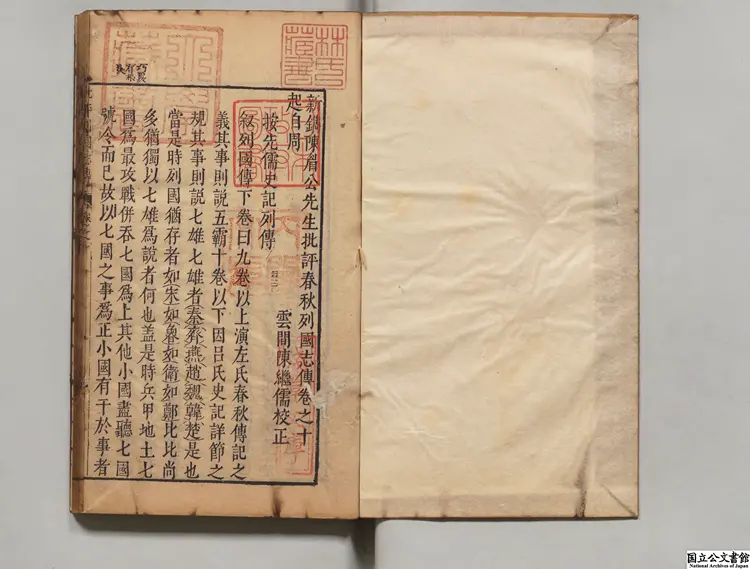 新鐫陳眉公先生批評春秋列國志傳卷之十
起自周
按先儒史記列傳
雲間陳繼儒校正
叙列國傳下卷曰九卷以上演左氏春秋傳記之
義其事則説五霸十卷以下因吕氏史記詳節之
規其事則説七雄七雄者秦齊燕趙魏韓楚是也
當是時列國猶存者如宋如魯如衛如鄭比比尚
多猶獨以七雄爲説者何也盖是時兵甲地土七
國爲最攻戰併吞七國爲上其他小國盡聽七國
號令而已故以七國之事爲正小國有干於事者
林氏藏書
国立公文書館
National Archives of Japan